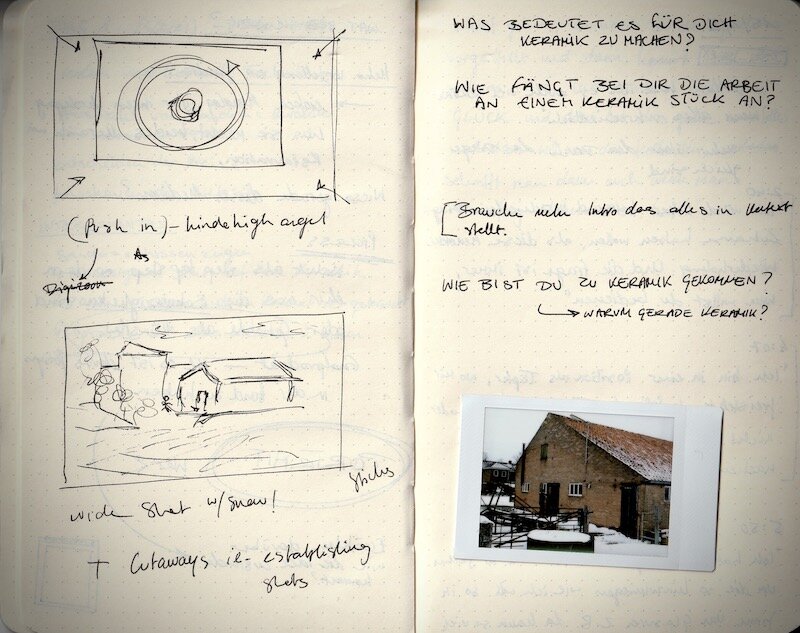 (Push in) - hinde high angel
As
Digizoom
wide shot w/snow!
sticks
+ Cutaways ie - establishing
shots
WAS BEDEUTET ES FÜR DICH
KERAMIK ZU MACHEN?
WIE FÄNGT BEI DIR DIE ARBEIT
AN EINEM KERAMIK STÜCK AN?
Brauche mehr Intro das alles in Kontext
stellt.
WIE BIST DU ZU KERAMIK GEKOMMEN?
WARUM GERADE KERAMIK?